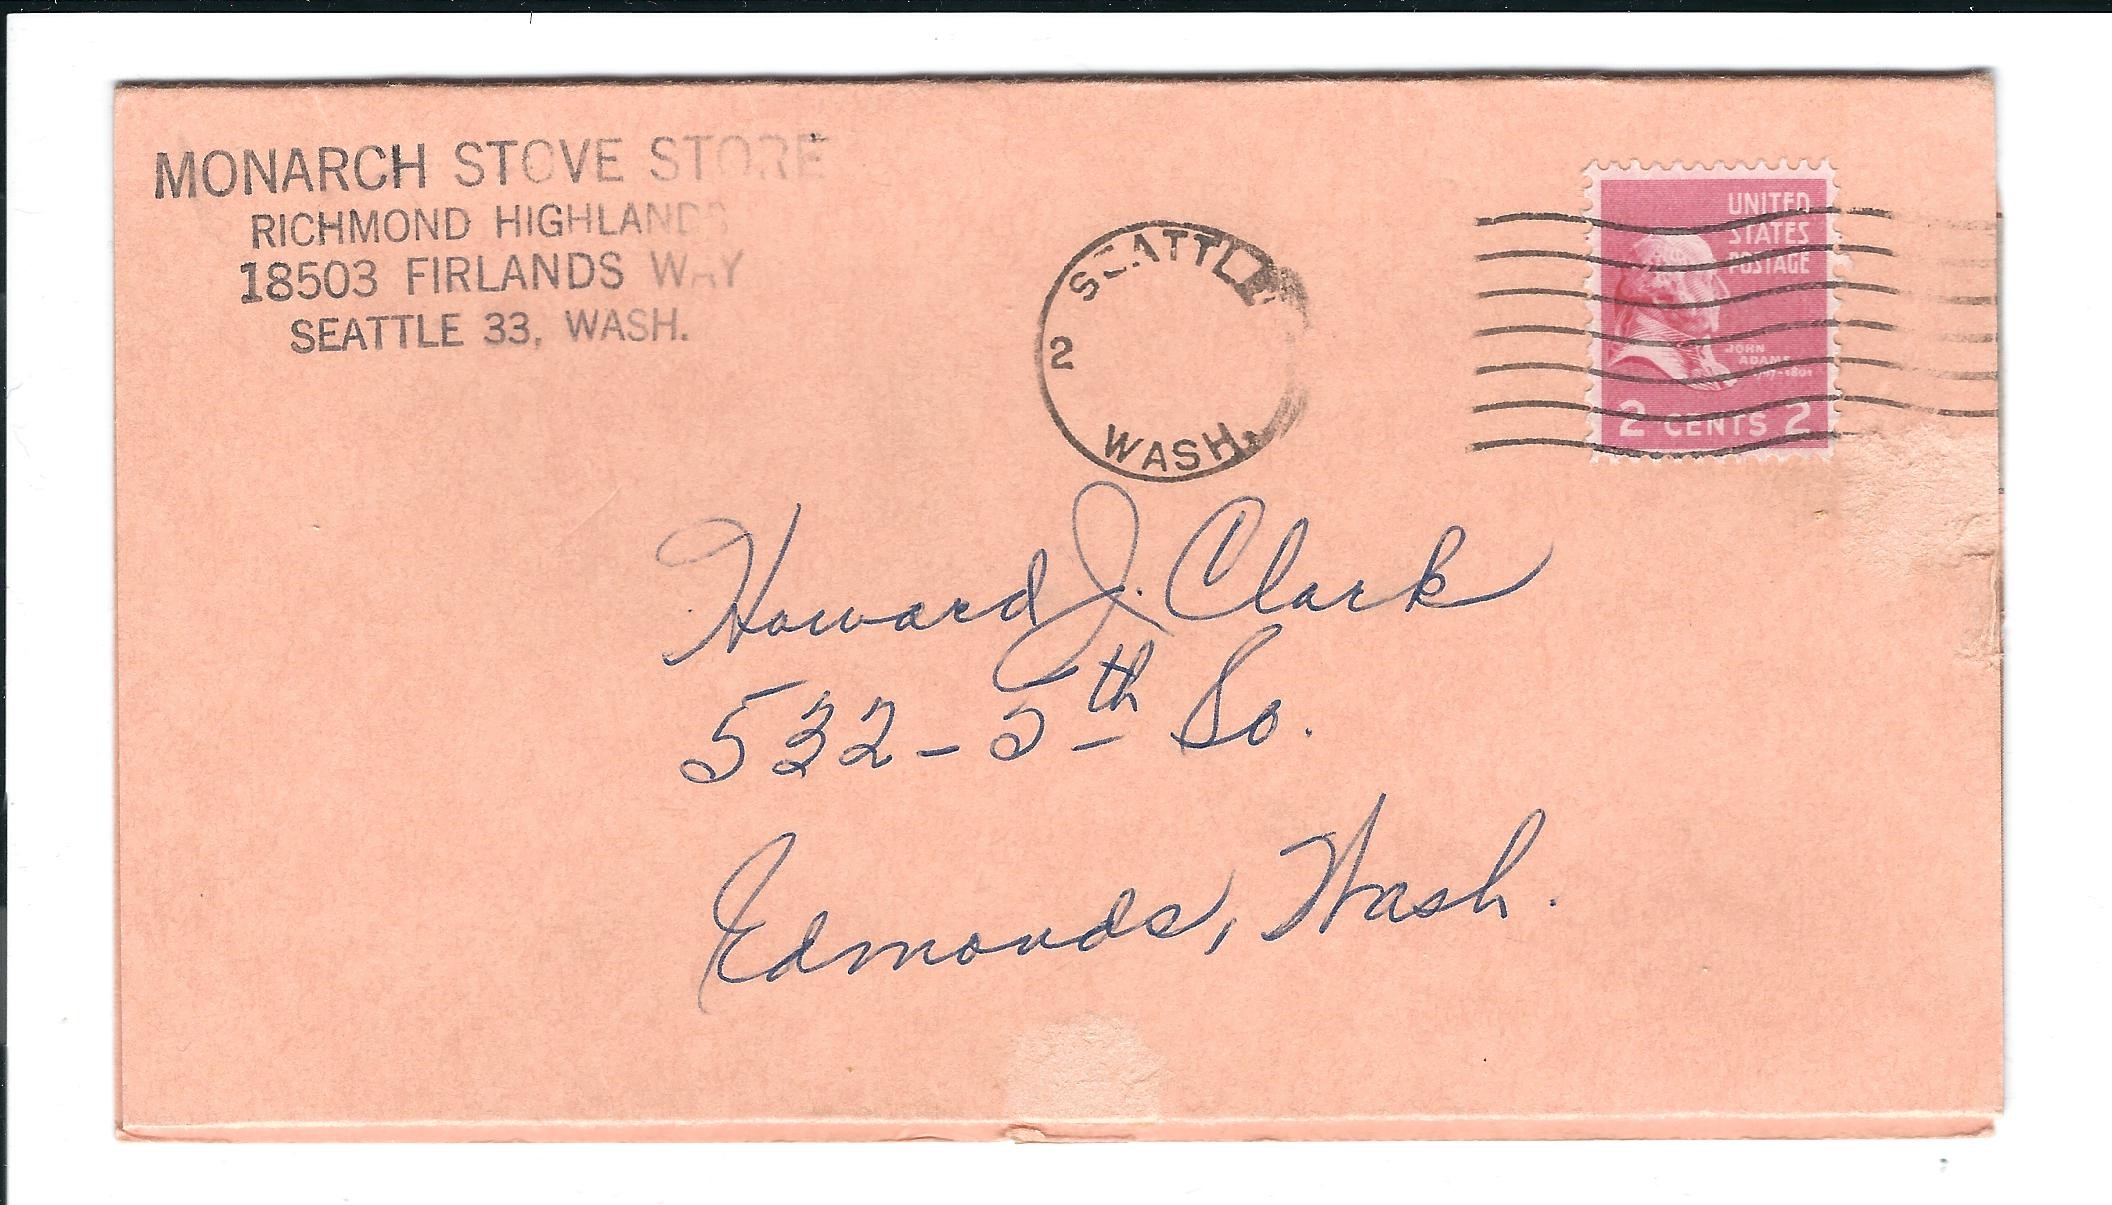 MONARCH STOVE STORE
RICHMOND HIGHLANDS
18503 FIRLANDS WAY
SEATTLE 33, WASH.
SEATTLE
2
WASH.
UNITED
STATES
POSTAGE
JOHN
ADAMS
1797-1801
2 CENTS 2
Howard J. Clark
532-5th So.
Edmonds, Wash.